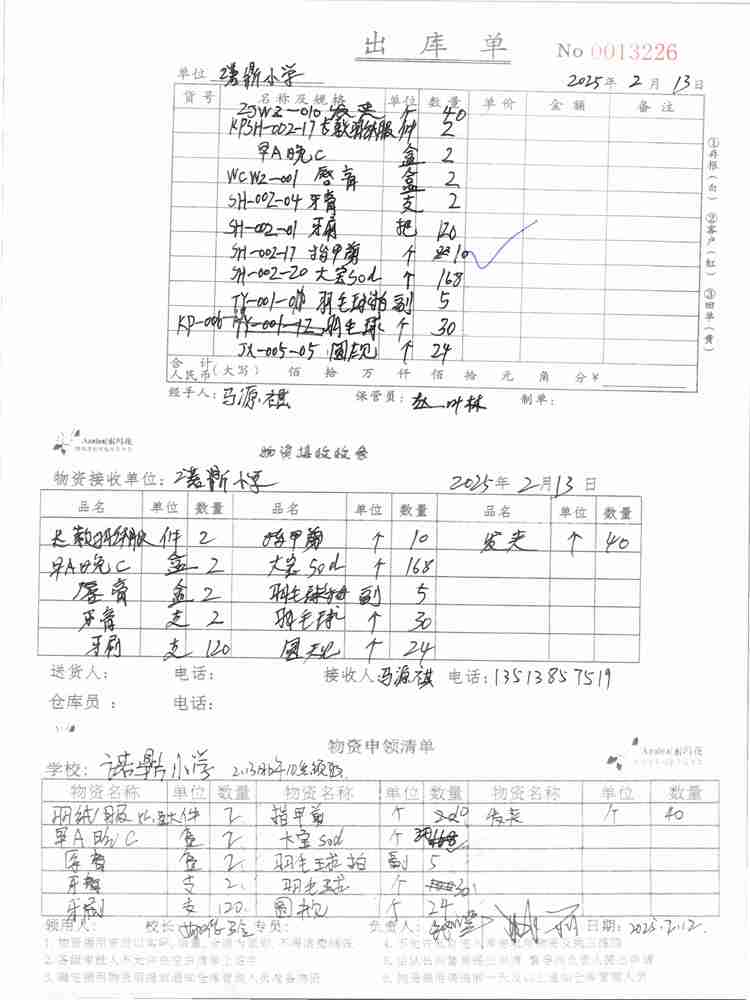 出 库 单 No 0013226
单位 诺鼎小学 2025年 2月 13日
货号 名称及规格 单位 数量 单价 金额 备注
ZJWZ-010 发夹 个 40
KPSH-002-17 长款羽绒服 件 2
早A晚C 盒 2
WCWZ-001 唇膏 盒 2
SH-002-04 牙膏 支 2
SH-002-01 牙刷 把 120
SH-002-17 指甲剪 个 10
SH-002-20 大宝Sod 个 168
TY-001-01 羽毛球拍 副 5
KP-006 TY-001-12 羽毛球 个 30
JX-005-05 圆规 个 24
合计人民币(大写) 佰 拾 万 仟 佰 拾 元 角 分¥
经手人:马源祺 保管员:赵叶林 制单:
①存根(白) ②客户(红) ③回单(黄)
物资接收收条
物资接收单位:诺鼎小学 2025年2月13日
品名 单位 数量 品名 单位 数量 品名 单位 数量
长款羽绒服 件 2 指甲剪 个 10 发夹 个 40
早A晚C 盒 2 大宝Sod 个 168
唇膏 盒 2 羽毛球拍 副 5
牙膏 支 2 羽毛球 个 30
牙刷 支 120 圆规 个 24
送货人: 电话: 接收人 马源祺 电话:13513857519
仓库员: 电话:
物资申领清单
学校:诺鼎小学
物资名称 单位 数量 物资名称 单位 数量 物资名称 单位 数量
羽绒服 件 2 指甲剪 个 10 发夹 个 40
早A晚C 盒 2 大宝Sod 个 168
唇膏 盒 2 羽毛球拍 副 5
牙膏 支 2 羽毛球 个 30
牙刷 支 120 圆规 个 24
领用人: 校长: 专员: 负责人: 日期:2025.2.12.